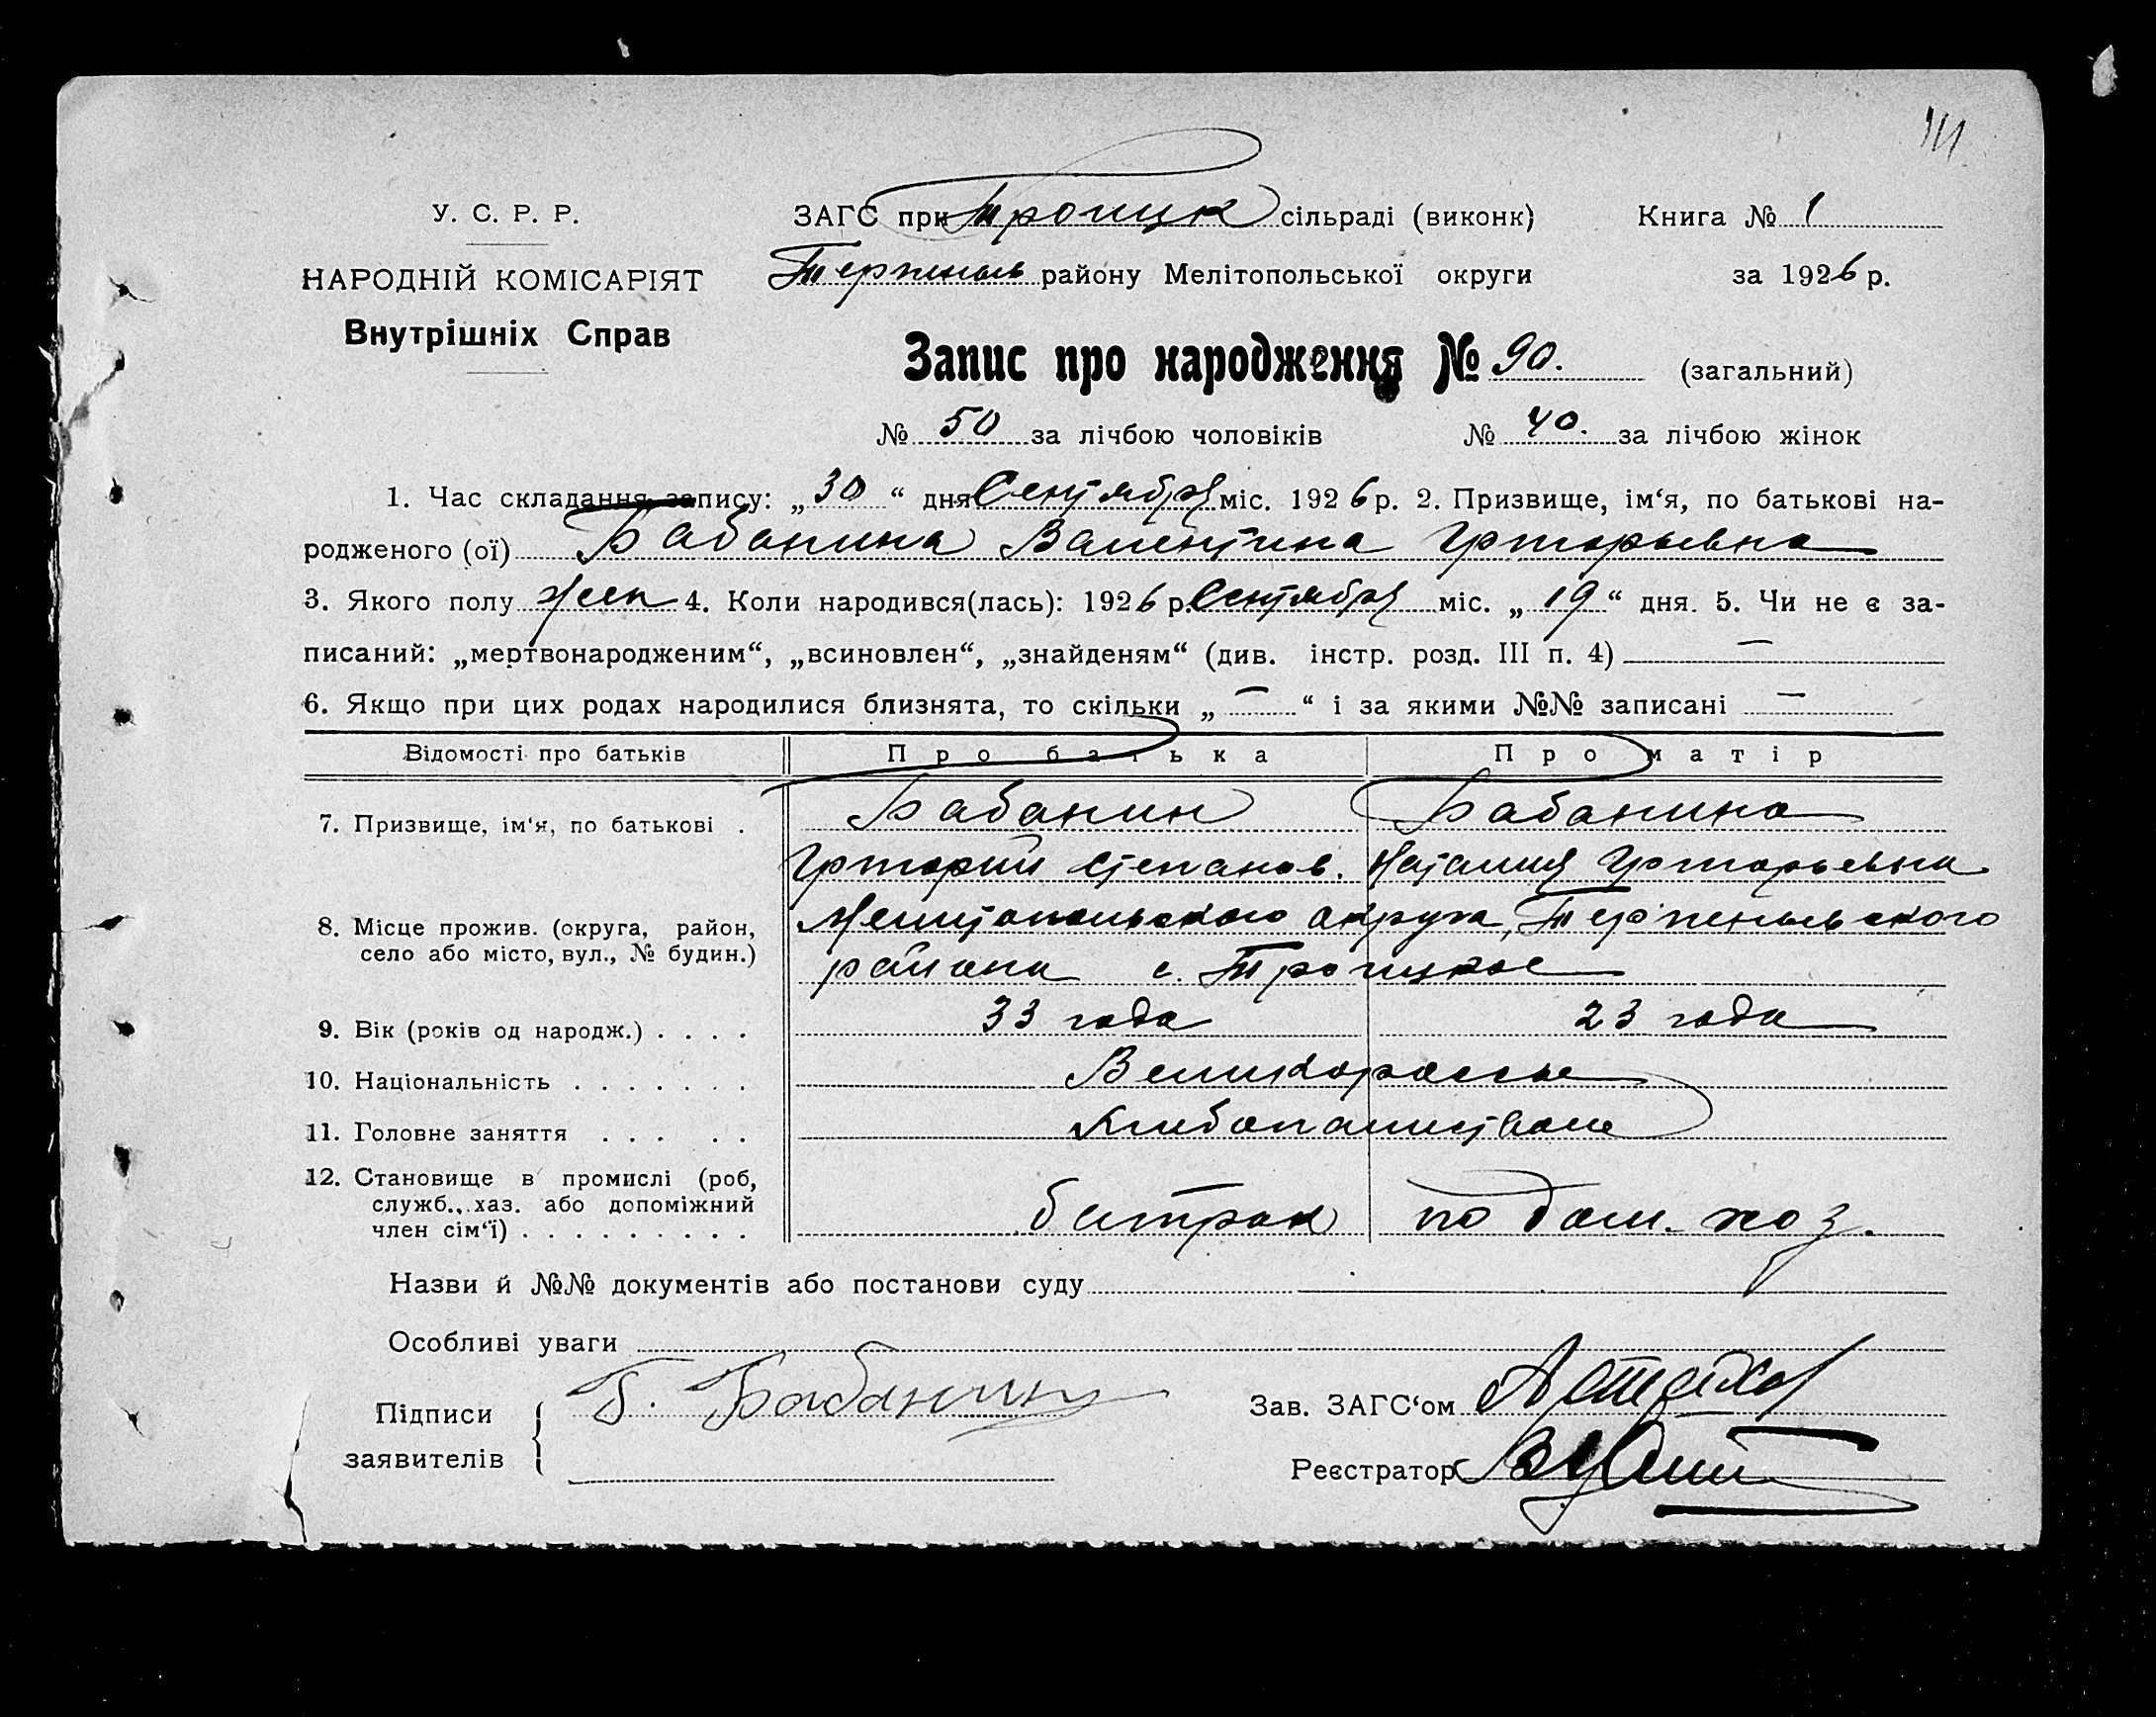 111
У. С. Р. Р.
НАРОДНІЙ КОМІСАРІЯТ
Внутрішніх Справ
ЗАГС при Троицк сільраді (виконк) Книга № 1
Терпеньев району Мелітопольської округи за 1926 р.
Запис про народження № 90. (загальний)
№ 50 за лічбою чоловіків № 40. за лічбою жінок
1. Час складання запису: „30“ дня Сентября міс. 1926 р. 2. Призвище, ім‘я, по батькові на-
родженого (ої) Бабанина Валентина Григорьевна
3. Якого полу жен 4. Коли народився(лась): 1926 р. Сентября міс. „19“ дня. 5. Чи не є за-
писаний: „мертвонародженим“, „всиновлен“, „знайденям“ (див. інстр. розд. III п. 4) —
6. Якщо при цих родах народилися близнята, то скільки „—“ і за якими №№ записані —
Відомості про батьків Про батька Про матір
7. Призвище, ім‘я, по батькові . Бабанин Бабанина
Григорий Степанов. Наталия Григорьевна
8. Місце прожив. (округа, район, село або місто, вул., № будин.) Мелитопольского округа, Терпеньевского
района с. Троицкое
9. Вік (років од народж.) . . . . 33 года 23 года
10. Національність . . . . . . . Великороссы
11. Головне заняття . . . . . Хлебопашество
12. Становище в промислі (роб,
служб., хаз. або допоміжний
член сім‘ї) . . . . . . . . . батрак по дом. хоз.
Назви й №№ документів або постанови суду
Особливі уваги
Підписи заявителів Г. Бабанин
Зав. ЗАГС‘ом
Реєстратор